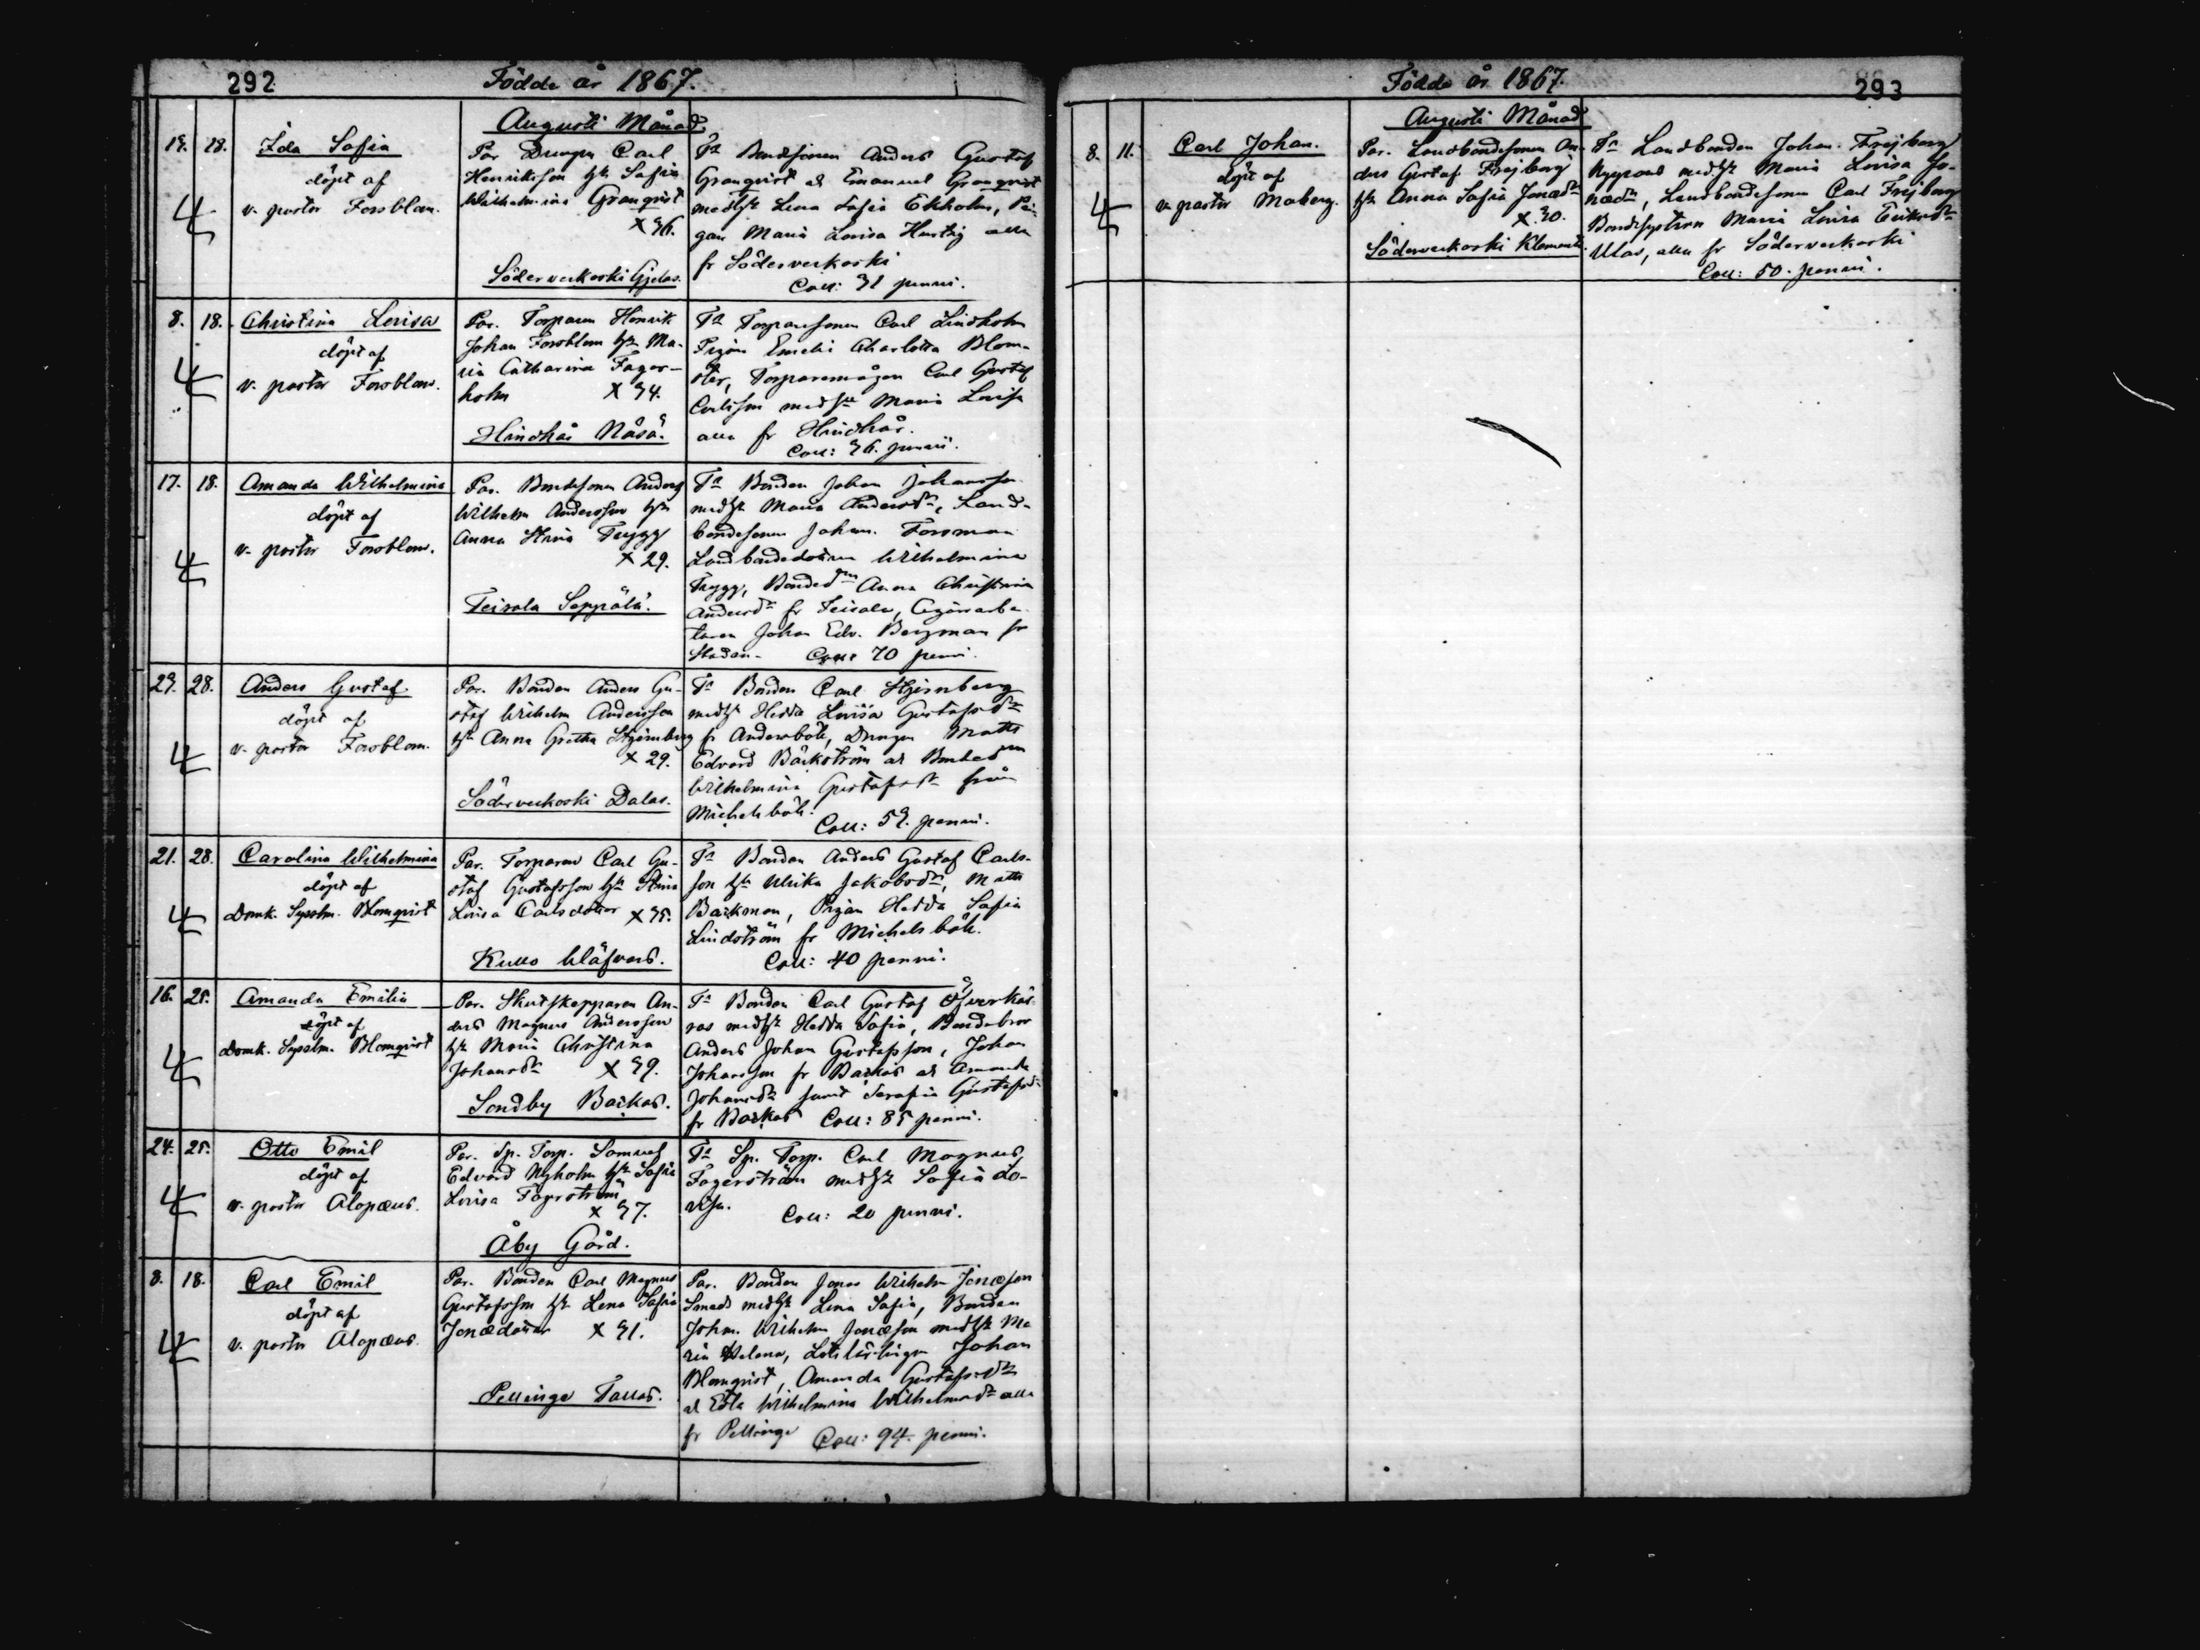 292
Födde år 1867.
Augusti Månad
13. 18. Ida Sofia
döpt af
v. pastor Forsblom.
Par Drengen Carl
Henriksson hu Sofia
Wilhelmina Granqvist
x 36.
Söderveckoski Gjelas.
Fa Bondesonen Anders Gustaf
Granqvist o Emanuel Granqvist
med hu Lena Sofia Ekholm, Pi-
gan Maria Lovisa Hurtig alla
fr Söderveckoski
Coll: 31 penni.
8. 18. Christina Lovisa
döpt af
v. pastor Forsblom.
Par. Torparen Henrik
Johan Forsblom hu Ma-
ria Catharina Fager-
holm x 34.
Hindhår Nåså.
Fa Torparesonen Carl Lindholm
Pigan Emelie Charlotta Blom-
ster, Torparemågen Carl Gustaf
Carlsson med hu Maria Lovisa
alla fr Hindhår.
Coll: 36. penni.
17. 18. Amanda Wilhelmina
döpt af
v. pastor Forsblom.
Par. Bondesonen Anders
Wilhelm Andersson hu
Anna Stina Trygg
x 29.
Teisala Seppälä.
Fa Bonden Johan Johansson
med hu Maria Andersdr, Land-
bondesonen Johan Forsman
Landbondedottren Wilhelmina
Trygg, Bonded Anna Christina
Andersdr fr Teisala,
Johan Edv. Bergman fr
staden. Coll: 70 penni.
23. 28. Anders Gustaf
döpt af
v. pastor Forsblom.
Par. Bonden Anders Gu-
staf Wilhelm Andersson
hu Anna Gretha Stjernberg
x 29.
Söderveckoski Dalas.
Fa Bonden Carl Stjernberg
med hu Hedda Lovisa Gustafsdr
fr Andersböle, Drengen Matts
Edvard Bäckström o Bonded
Wilhelmina Gustafsdr från
Michelsböle.
Coll: 53. penni.
21. 28. Carolina Wilhelmina
döpt af
Domk. Sysslm. Blomqvist
Par. Torparen Carl Gu-
staf Gustafsson hu Stina
Lovisa Carlsdotter x 35.
Kullo
Fa Bonden Anders Gustaf Carls-
son hu Ulrika Jakobsdr, Matts
Backman, Pigan Hedda Sofia
Lindström fr Michelsböle.
Coll: 40 penni.
16. 25. Amanda Emilia
döpt af
Domk. Sysslm. Blomqvist
Par. Skutskepparen An-
ders Magnus Andersson
hu Maria Christina
Johansdr x 39.
Sondby Backas.
Fa Bonden Carl Gustaf
med hu Hedda Sofia, Bondebror
Anders Johan Gustafsson, Johan
Johansson fr Backas o Amanda
Johansdr samt Serafia Gustafsdr
fr Backas Coll: 85 penni.
24. 25. Otto Emil
döpt af
v. pastor Alopæus.
Par. Sp. Torp. Samuel
Edvard Nyholm hu Sofia
Lovisa Fagerström
x 37.
Åby Gård.
Fa Sp. Torp. Carl Magnus
Fagerström med hu Sofia Lo-
visa. Coll: 20 penni.
8. 18. Carl Emil
döpt af
v. pastor Alopæus.
Par. Bonden Carl Magnus
Gustafsson hu Lena Sofia
Jonædotter x 31.
Pellinge Tallas.
Par. Bonden Jonas Wilhelm Jonæson
Smeds med hu Lena Sofia, Bonden
Johan Wilhelm Jonæson med hu Ma-
ria Helena, Johan
Blomqvist, Amanda Gustafsdr
o Edla Wilhelmina Wilhelmsdr alla
fr Pellinge Coll: 94. penni.
293
Födde år 1867.
Augusti Månad
8. 11. Carl Johan.
döpt af
v. pastor Moberg.
Par. Landbondesonen An-
ders Gustaf Frejborg
hu Anna Sofia Jonædr
x 30.
Söderveckoski Klements.
Fa Landbonden Johan Frejborg
med hu Maria Lovisa Jo-
nædr, Landbondesonen Carl Frejborg
Bondesystren Maria Lovisa Eriksdr
Ulas, alla fr Söderveckoski
Coll: 50. penni.